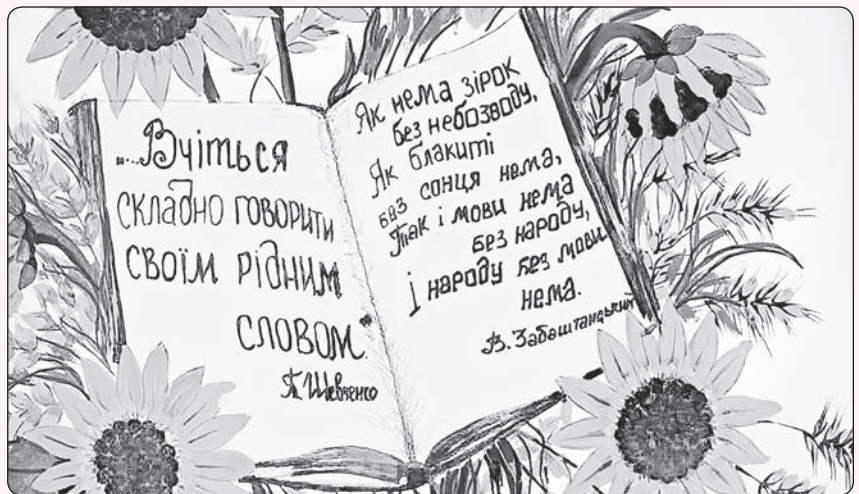 „...Вчіться
складно говорити
своїм рідним
словом."
Т. Шевченко
Як нема зірок
без небозводу,
Як блакиті
без сонця нема,
Так і мови нема
без народу,
і народу без мови
нема.
В. Забаштанський